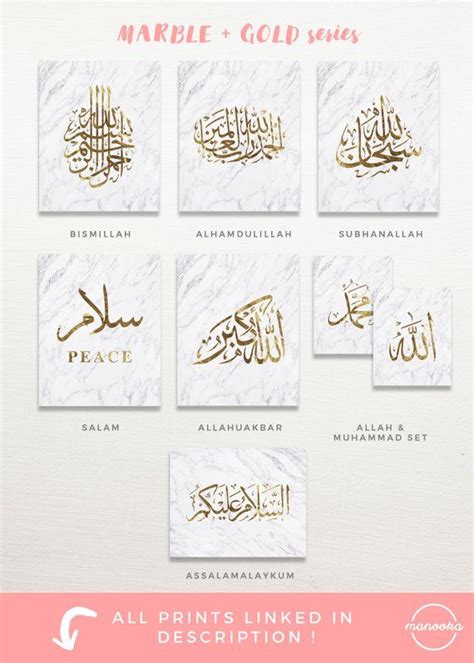 MARBLE + GOLD series
بسم الله الرحمن الرحيم
الحمد لله رب العالمين
سبحان الله
BISMILLAH
ALHAMDULILLAH
SUBHANALLAH
سلام
PEACE
الله أكبر
محمد
الله
SALAM
ALLAHUAKBAR
ALLAH &
MUHAMMAD SET
السلام عليكم
ASSALAMALAYKUM
ALL PRINTS LINKED IN
DESCRIPTION !
manooka